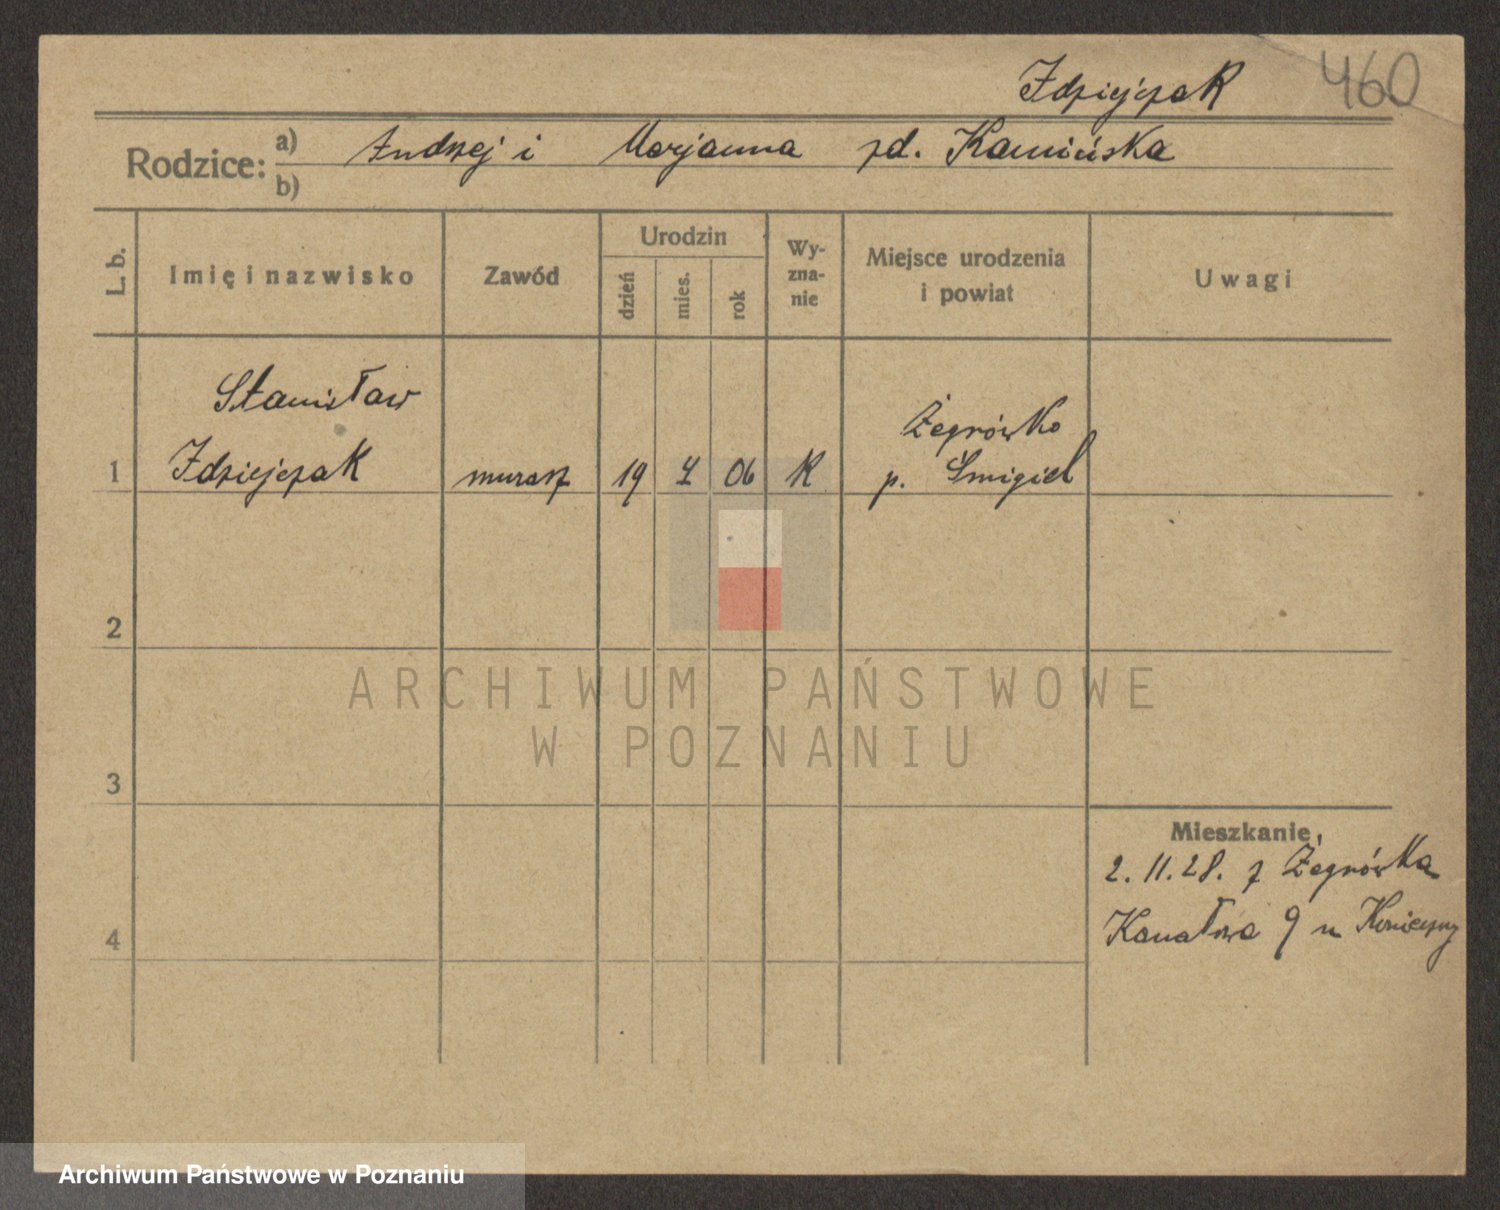 460
Zdziejczak
Rodzice: a) Andrzej i Marjanna zd. Kamińska
b)
L. b.
Imię i nazwisko
Zawód
Urodzin
dzień
mies.
rok
Wy-
zna-
nie
Miejsce urodzenia
i powiat
Uwagi
Stanisław
1 Zdziejczak murarz 19 4 06 K
Żegrówko
p. Śmigiel
2
3
4
Mieszkanie
2. 11. 28. z Żegrówka
Kanałowa 9 u Konieczny
ARCHIWUM PAŃSTWOWE
W POZNANIU
Archiwum Państwowe w Poznaniu